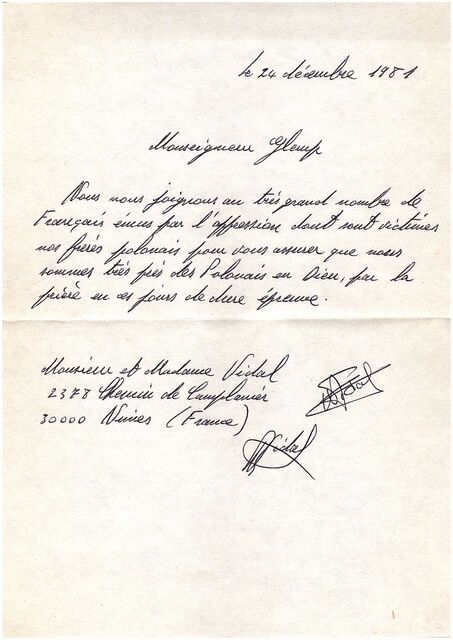 le 24 décembre 1981
Monseigneur Glemp
Nous nous joignons au très grand nombre de
Français émus par l'oppression dont sont victimes
nos frères polonais pour vous assurer que nous
sommes très près des Polonais en Dieu, par la
prière en ces jours de dure épreuve.
Monsieur et Madame Vidal
2378 Chemin de Campl
30000 Nimes (France)
Vidal
Vidal